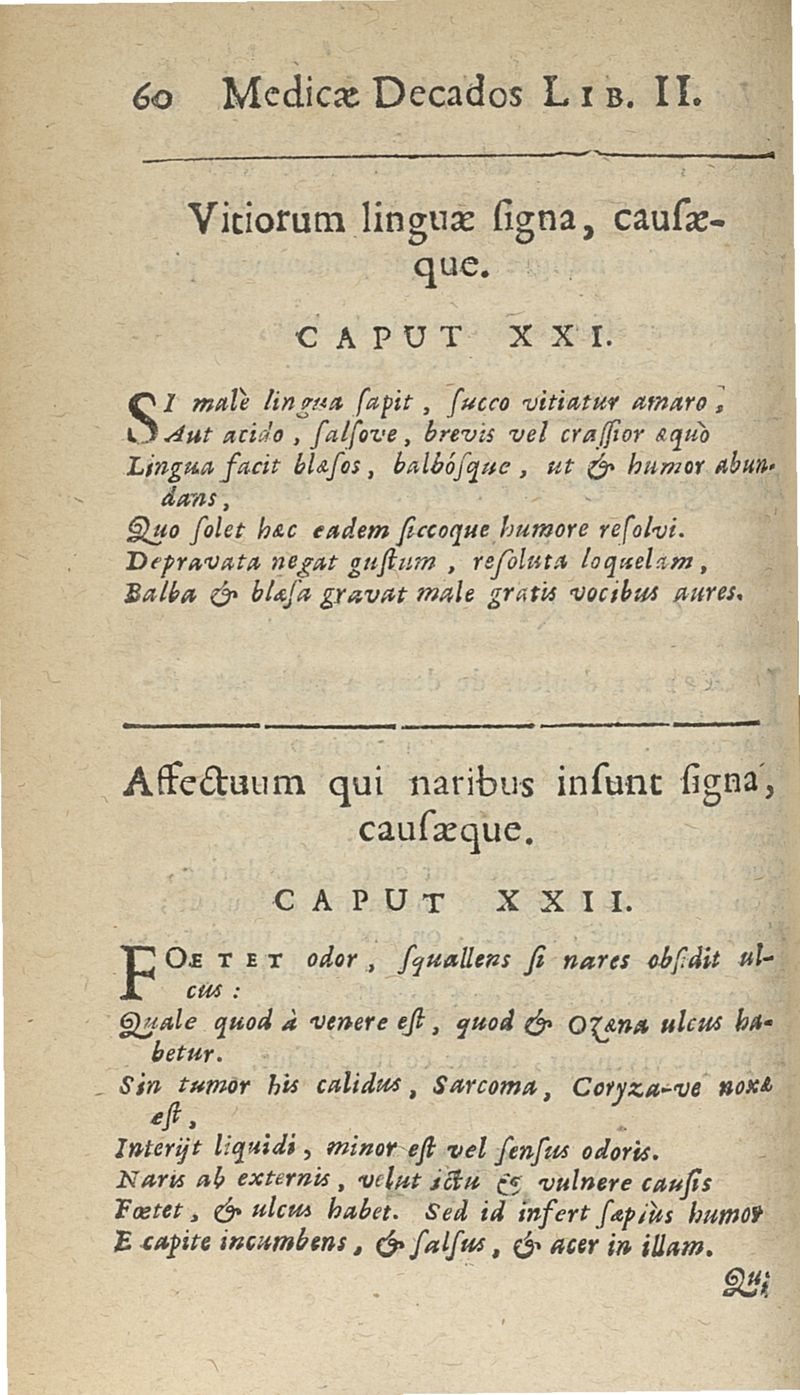 60 Medicæ Decados LIB. II.
Vitiorum linguæ ſigna, cauſæ-
que.
CAPUT XXI.
SI male lingua ſapit, ſucco vitiatur amaro,
Aut acido, ſalſove, brevis vel craſſior æquò
Lingua facit blæſos, balbóſque, ut & humor abun-
dans,
Quo ſolet hæc eadem ſiccoque humore reſolvi.
Depravata negat guſtum, reſoluta loquelam,
Balba & blæſa gravat male gratis vocibus aures.
Affectuum qui naribus inſunt ſigna,
cauſæque.
CAPUT XXII.
FOETET odor, ſquallens ſi nares obſidit ul-
cus:
Quale quod à venere eſt, quod & Ozæna ulcus ha-
betur.
Sin tumor his calidus, Sarcoma, Coryza-ve noxæ
eſt,
Interijt liquidi, minor eſt vel ſenſus odoris.
Naris ab externis, velut ictu & vulnere cauſis
Fœtet, & ulcus habet. Sed id infert ſæpiùs humor
E capite incumbens, & ſalſus, & acer in illam.
Qui